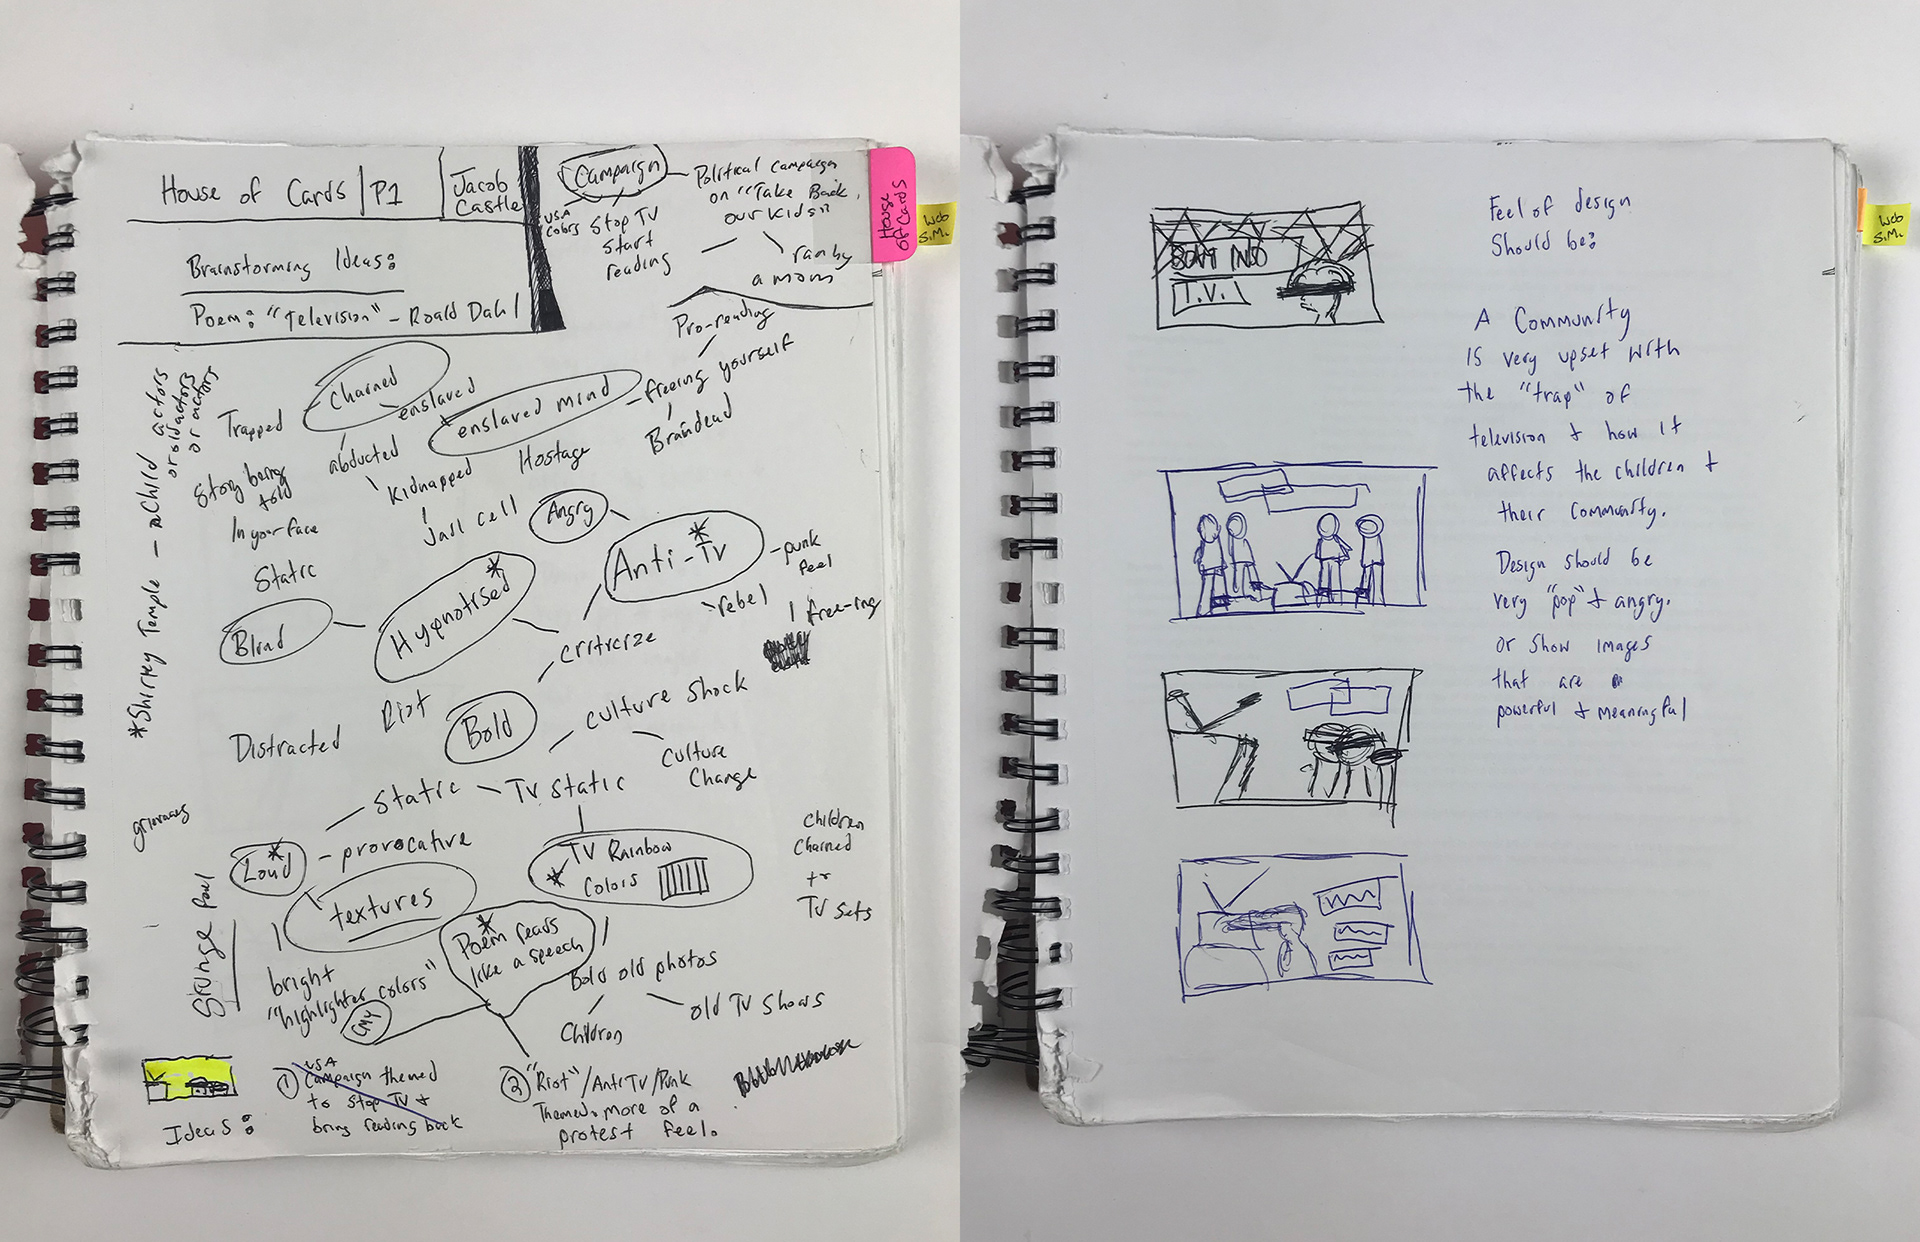 House of Cards | P1
Jacob
Castle
Brainstorming Ideas:
Poem: "Television" - Roald Dahl
Campaign
USA
Colors
Stop TV
Start
reading
Political campaign
on "Take Back
our Kids"
ran by
a mom
House
of Cards
Web
S.M.
Pro-reading
freeing yourself
Braindead
Chained
enslaved
enslaved mind
Trapped
abducted
Kidnapped
Hostage
Jail cell
Story being
told
In your face
Static
*Shirley Temple - a child
actors
or actors
Angry
Anti-TV
*
- punk
feel
rebel
free-ing
Hypnotised
*
Blind
criticize
Riot
Bold
Culture Shock
Culture
Change
Distracted
Static
TV Static
grievances
Loud
*
- provocative
textures
TV Rainbow
* Colors
Children
Chained
to
TV Sets
Grunge feel
*
Poem reads
like a speech
bright
"highlighter colors"
CMY
Bold old photos
Children
old TV Shows
Ideas:
① USA
Campaign themed
to stop TV &
bring reading back
② "Riot"/Anti TV/Punk
Themed. more of a
protest feel.
Web
S.M.
T.V.
Feel of design
Should be:
A Community
is very upset with
the "trap" of
television & how it
affects the children &
their community.
Design should be
very "pop" & angry.
or show images
that are
powerful & meaningful